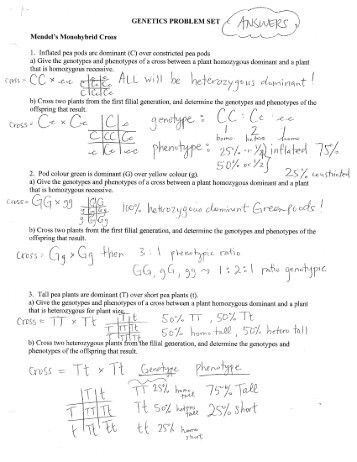 GENETICS PROBLEM SET
ANSWERS
Mendel's Monohybrid Cross
1. Inflated pea pods are dominant (C) over constricted pea pods
a) Give the genotypes and phenotypes of a cross between a plant homozygous dominant and a plant
that is homozygous recessive.
cross = CC × cc ALL will be heterozygous dominant!
b) Cross two plants from the first filial generation, and determine the genotypes and phenotypes of the
offspring that result.
cross = Cc × Cc genotype: CC : Cc : cc
1 2 1
homo. hetero homo.
phenotype: 25% or 1/4 inflated 75%
50% or 1/2
25% constricted
2. Pod colour green is dominant (G) over yellow colour (g).
a) Give the genotypes and phenotypes of a cross between a plant homozygous dominant and a plant
that is homozygous recessive.
cross = GG × gg 100% heterozygous dominant Green pods!
b) Cross two plants from the first filial generation, and determine the genotypes and phenotypes of the
offspring that result.
cross: Gg × Gg then 3:1 phenotypic ratio
GG, gG, gg → 1:2:1 ratio genotypic
3. Tall pea plants are dominant (T) over short pea plants (t).
a) Give the genotypes and phenotypes of a cross between a plant homozygous dominant and a plant
that is heterozygous for plant size.
Cross = TT × Tt 50% TT, 50% Tt
50% homo tall, 50% hetero tall
b) Cross two heterozygous plants from the filial generation, and determine the genotypes and
phenotypes of the offspring that result.
Cross = Tt × Tt Genotype Phenotype
T t TT 25% homo tall 75% Tall
T TT Tt Tt 50% hetero tall 25% short
t Tt tt tt 25% homo short